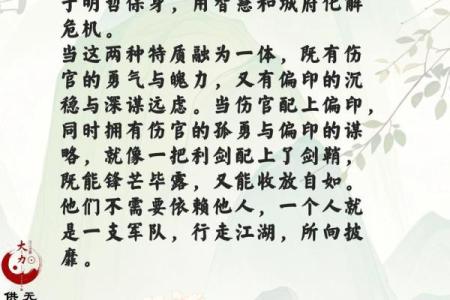 于明哲保身，用智慧和城府化解
危机。
当这两种特质融为一体，既有伤
官的勇气与魄力，又有偏印的沉
稳与深谋远虑。当伤官配上偏印，
同时拥有伤官的孤勇与偏印的谋
略，就像一把利剑配上了剑鞘，
既能锋芒毕露，又能收放自如。
他们不需要依赖他人，一个人就
是一支军队，行走江湖，所向披
靡。
大力